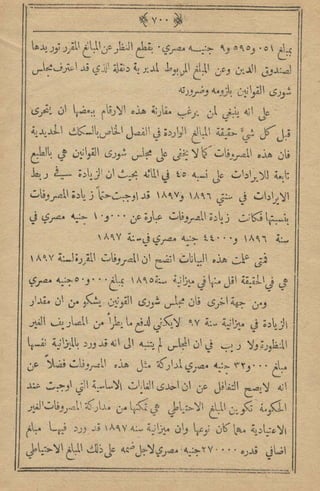 ﴿ ٧٠٠ ﴾
بمبلغ ٠٥١ و٥٩٥ و٩ جنيه مصري . بقطع النظر عن المبالغ المقرر توريدها
لصندوق الدين وعن المبلغ المربوط لمديرية دنقلة الذي قد اعترف مجلس
شورى القوانين بلزومه وضرورته
على انه ينبغي لمن يرغب مقارنة هذه الارقام ببعضها ان يتحرى
قبل كل شيء حقيقة المبالغ الواردة في الفصل الخاص بالسكك الحديدية
فان هذه المصروفات كما لا يخفى على مجلس شورى القوانين هي بالطبع
تابعة للايرادات على نسبة ٤٥ في المائه بحيث ان الزيادة في ربط
الايرادات في سنتي ١٨٩٦ و١٨٩٧ قد اوجبت حتماً زيادة المصروفات
بنسبتها فكانت زيادة المصروفات عبارة عن ٠٠٠ و١٠ جنيه مصري في
سنة ١٨٩٦ و٤٤٠٠٠ جنيه مصري في سنة ١٨٩٧
فمتى علمت هذه البيانات اتضح ان المصروفات المقررة لسنة ١٨٩٧
هي في الحقيقة اقل منها في ميزانية سنة ١٨٩٥ بمبلغ ٠٠٠ و٥٠ جنيه مصري
ومن جهة اخرى فان مجلس شورى القوانين يشكو من ان مقدار
الزيادة في ميزانية سنة ٩٧ لا يكفي لدفع ما يطرأ من المصاريف الغير
المنظورة ولا ريب في ان المجلس لم يتنبه الى انه قد ورد بالميزانية نفسها
مبلغ ٠٠٠ و٣٢ جنيه مصري لمداركة مثل هذه المصروفات فضلاً عن
انه لا يصح التغافل عن ان احدى الغايات الاساسية التي اوجبت عند
الحكومة تكوين المبلغ الاحتياطي هي تمكنها من مداركة المصروفات الغير
الاعتيادية مهما كان نوعها وان ميزانية سنه ١٨٩٧ قد ورد فيها مبلغ
اضافي قدره ٢٧٠٠٠٠ جنيه مصري لاجل ضمه على ذلك المبلغ الاحتياطي